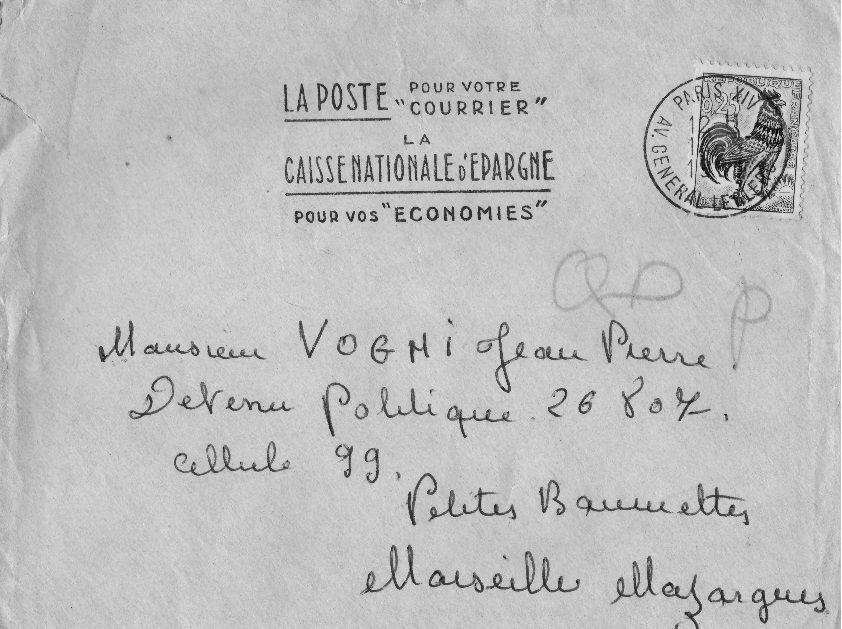 LA POSTE POUR VOTRE
"COURRIER"
LA
CAISSE NATIONALE d'EPARGNE
POUR VOS "ECONOMIES"
PARIS XIV
AV. GENERAL LECLERC
0,25
P
Monsieur VOGNI Jean Pierre
Detenu Politique 26 807.
Cellule 99.
Petites Baumettes
Marseille Mazargues